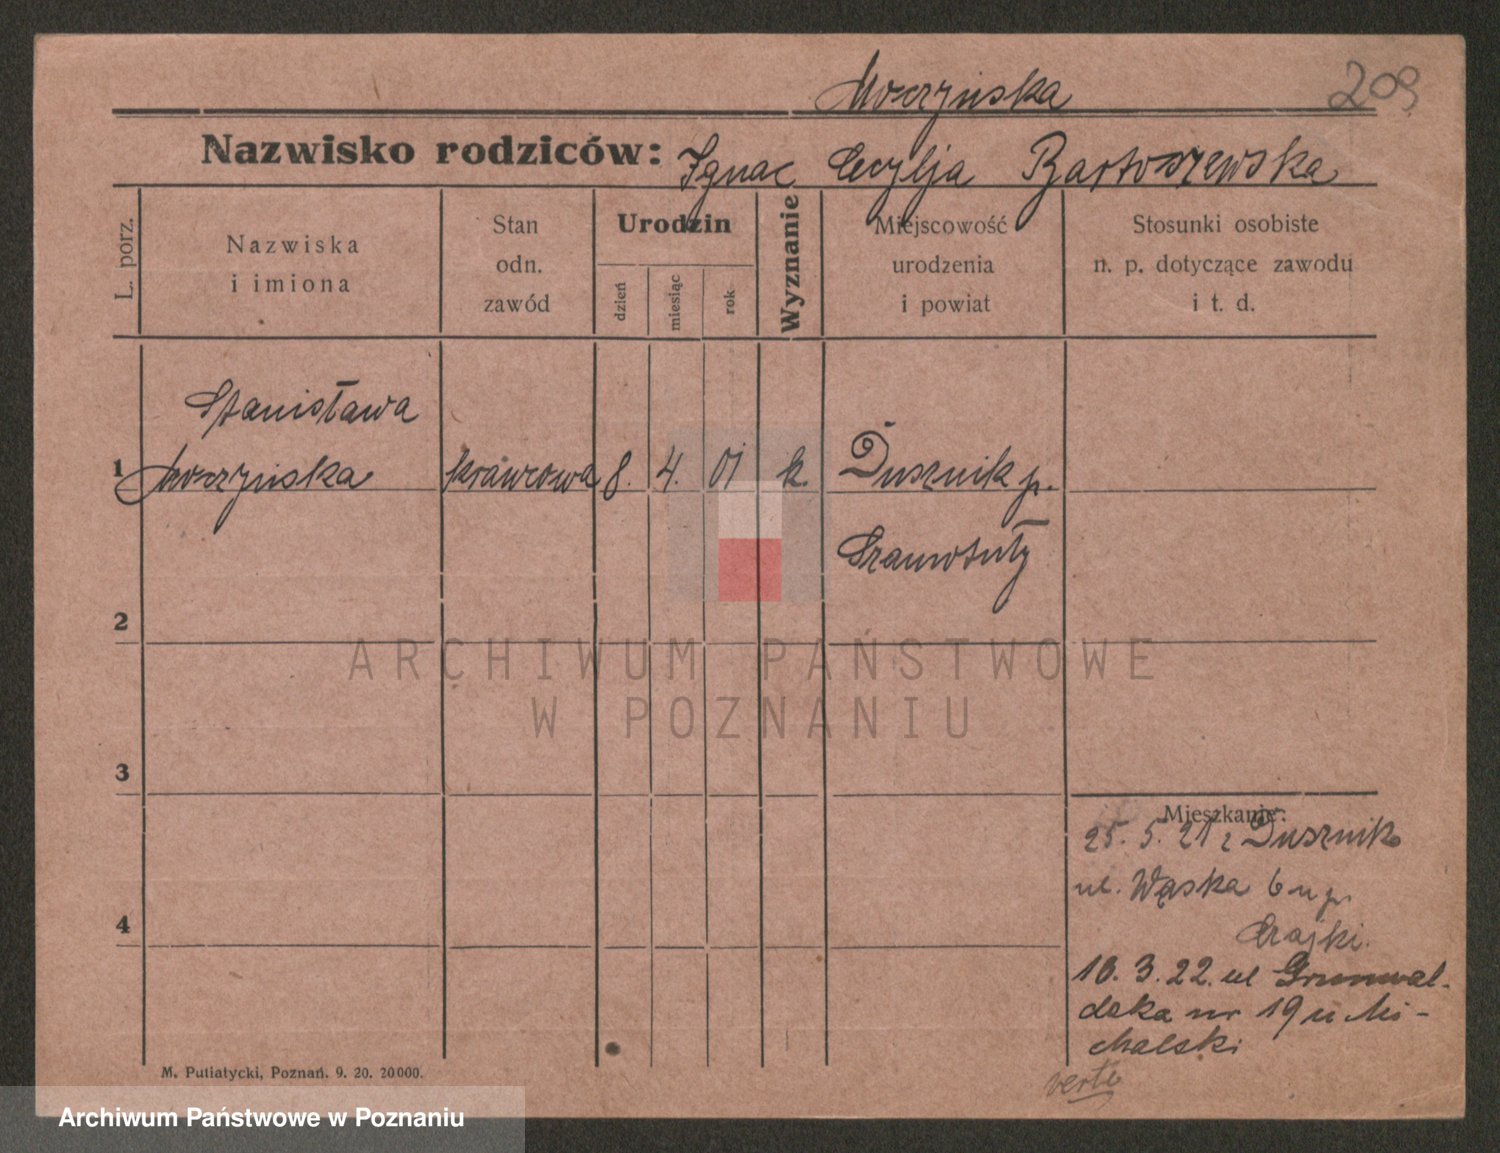 Moczyńska 209
Nazwisko rodziców: Ignac Cecylja Bartoszewska
L. porz.
Nazwiska
i imiona
Stan
odn.
zawód
Urodzin
dzień
miesiąc
rok
Wyznanie
Miejscowość
urodzenia
i powiat
Stosunki osobiste
n. p. dotyczące zawodu
i t. d.
Stanisława
1 Moczyńska krawcowa 8. 4. 01 k. Dusznik p.
Szamotuły
2
ARCHIWUM PAŃSTWOWE
W POZNANIU
3
Mieszkanie:
25. 5. 21 z Dusznik
ul. Wąska 6 u p.
4
10. 3. 22. ul Grunwal-
dzka nr 19 u Mi-
chalski
verte
M. Putiatycki, Poznań. 9. 20. 20000.
Archiwum Państwowe w Poznaniu